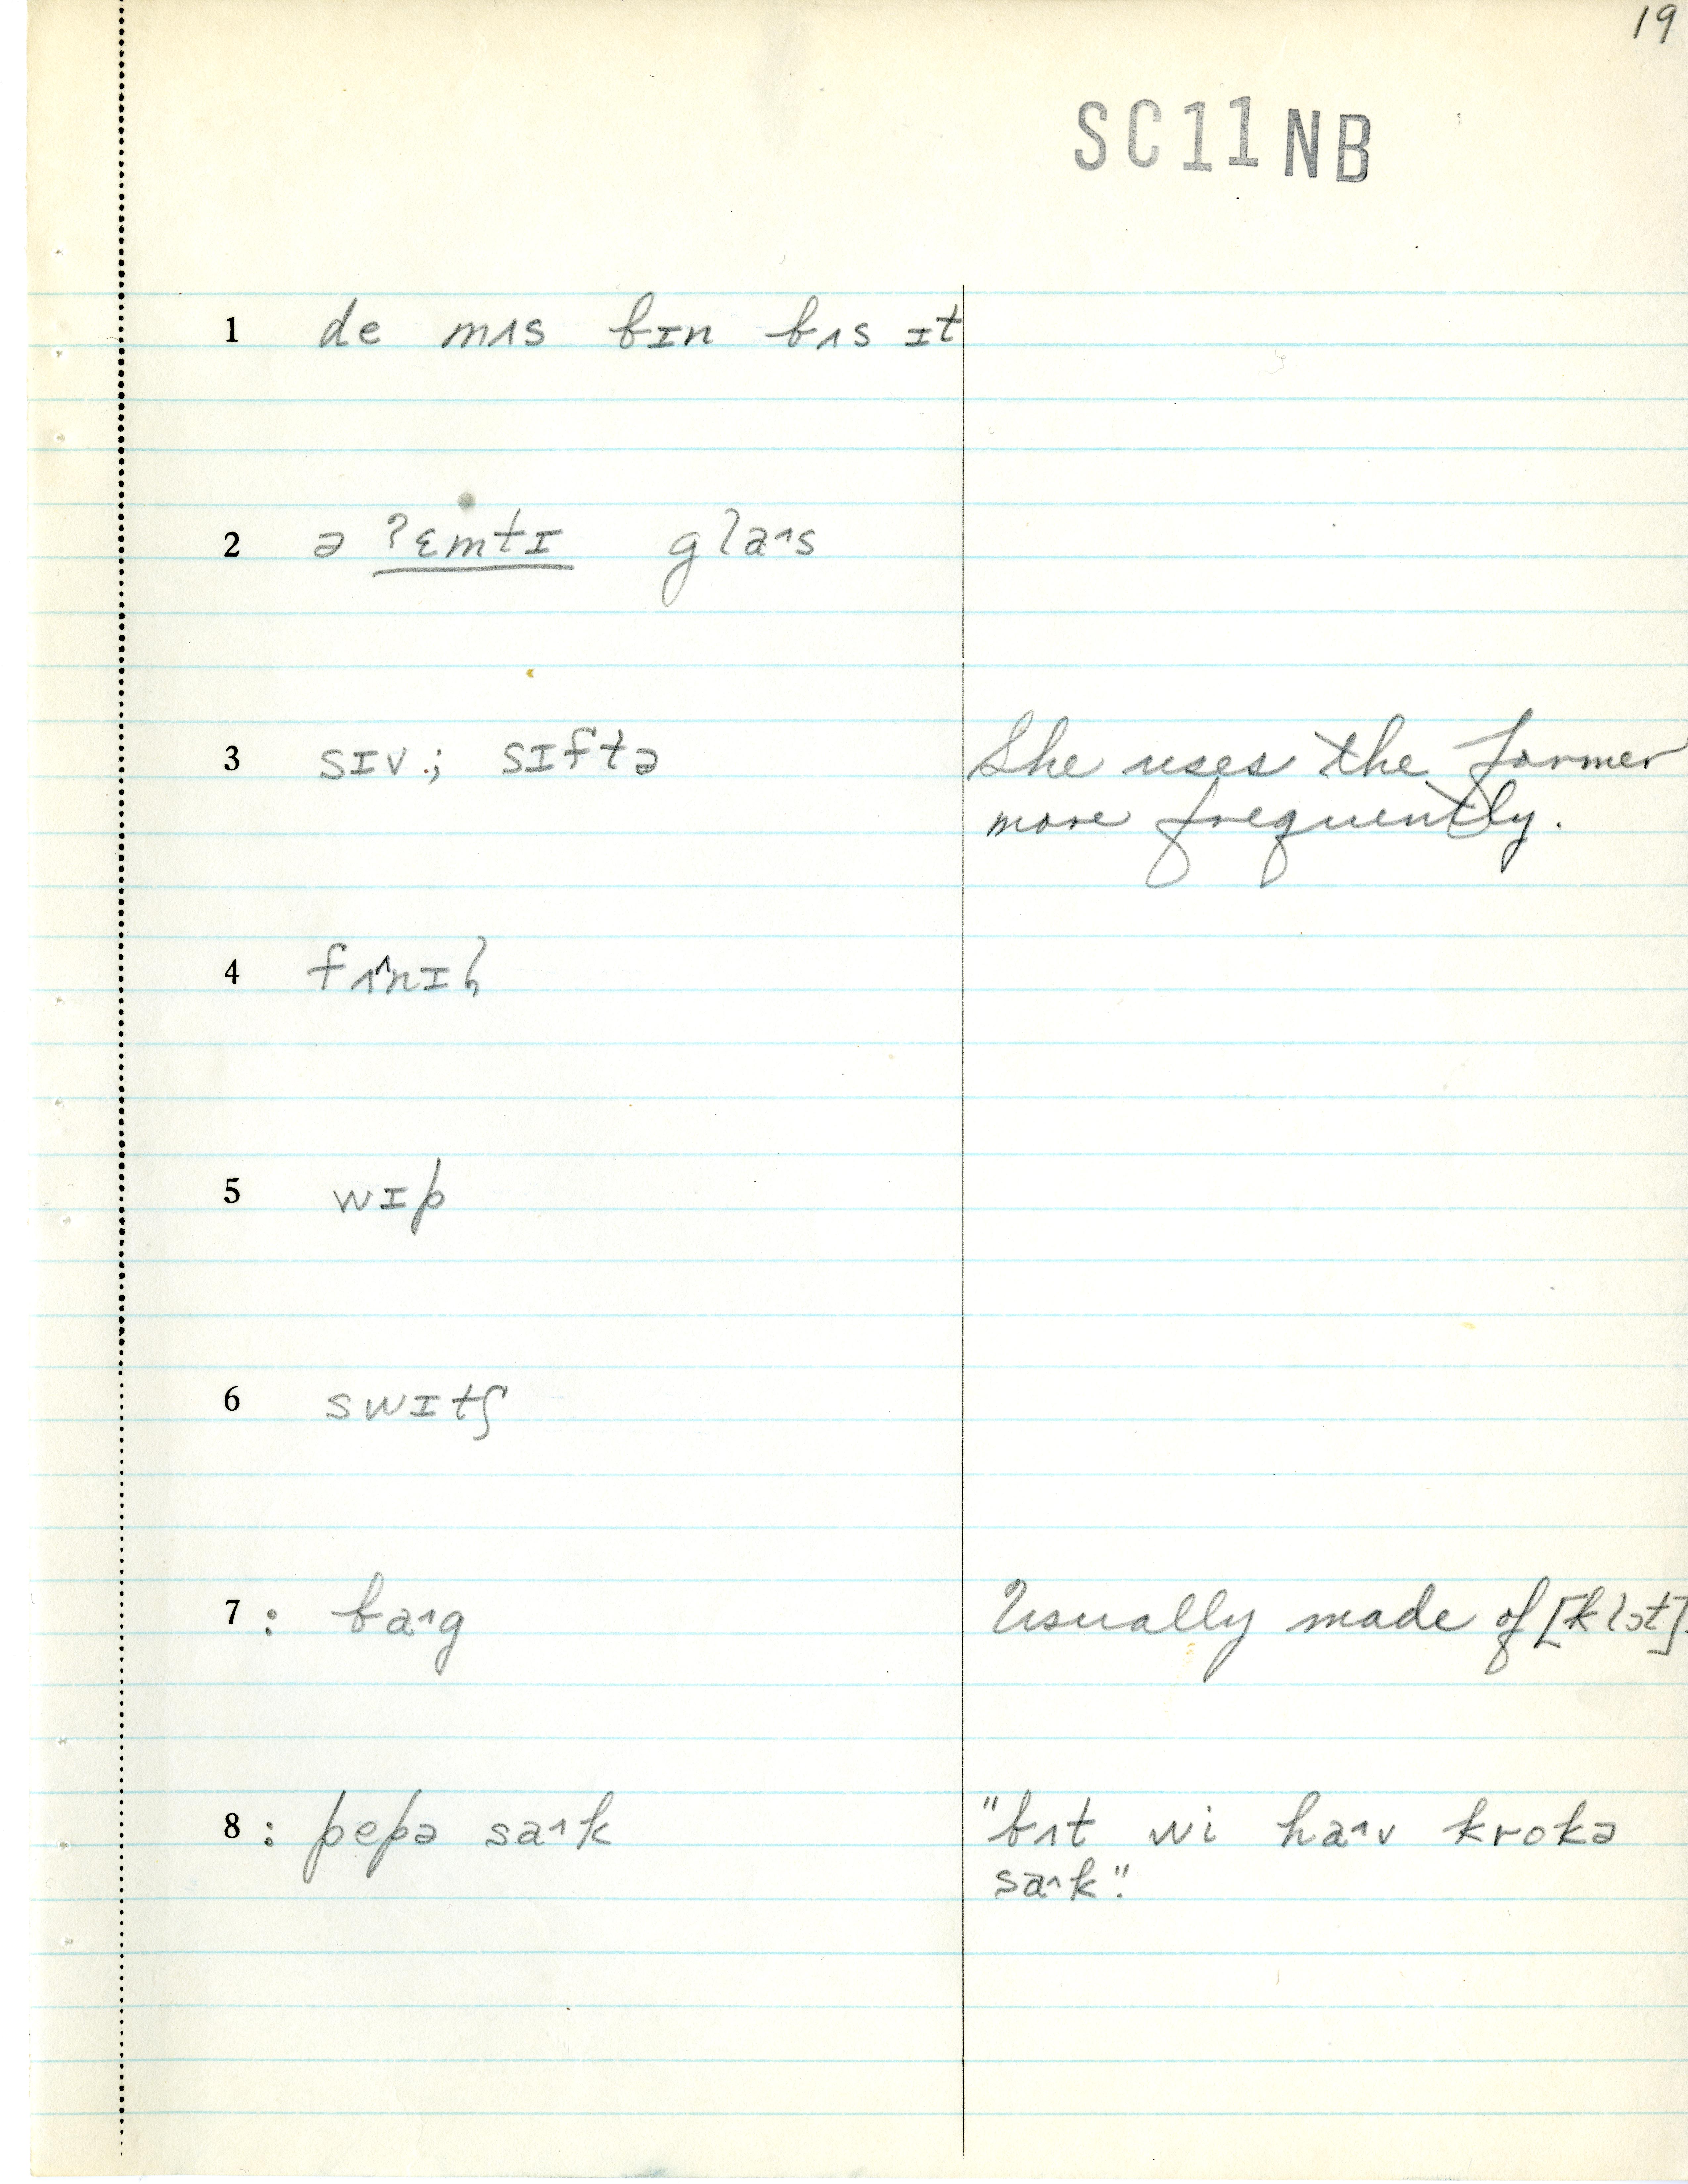 19
SC11NB
1 de mʌs bɪn bʌs ɪt
2 ə ʔɛmtɪ glaˆs
3 sɪv.; sɪftə She uses the former
more frequently.
4 fʌˆnɪl̥
5 wɪp
6 swɪtʃ
7 : baˆg Usually made of [klɔt].
8 : pepə saˆk "bʌt wi haˆv krokə
saˆk".